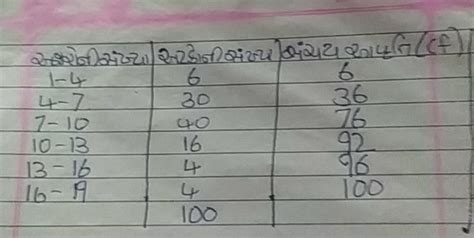 અક્ષરોની સંખ્યા અટકોની સંખ્યા સંચયી આવૃત્તિ (cf)
1-4 6 6
4-7 30 36
7-10 40 76
10-13 16 92
13-16 4 96
16-19 4 100
100